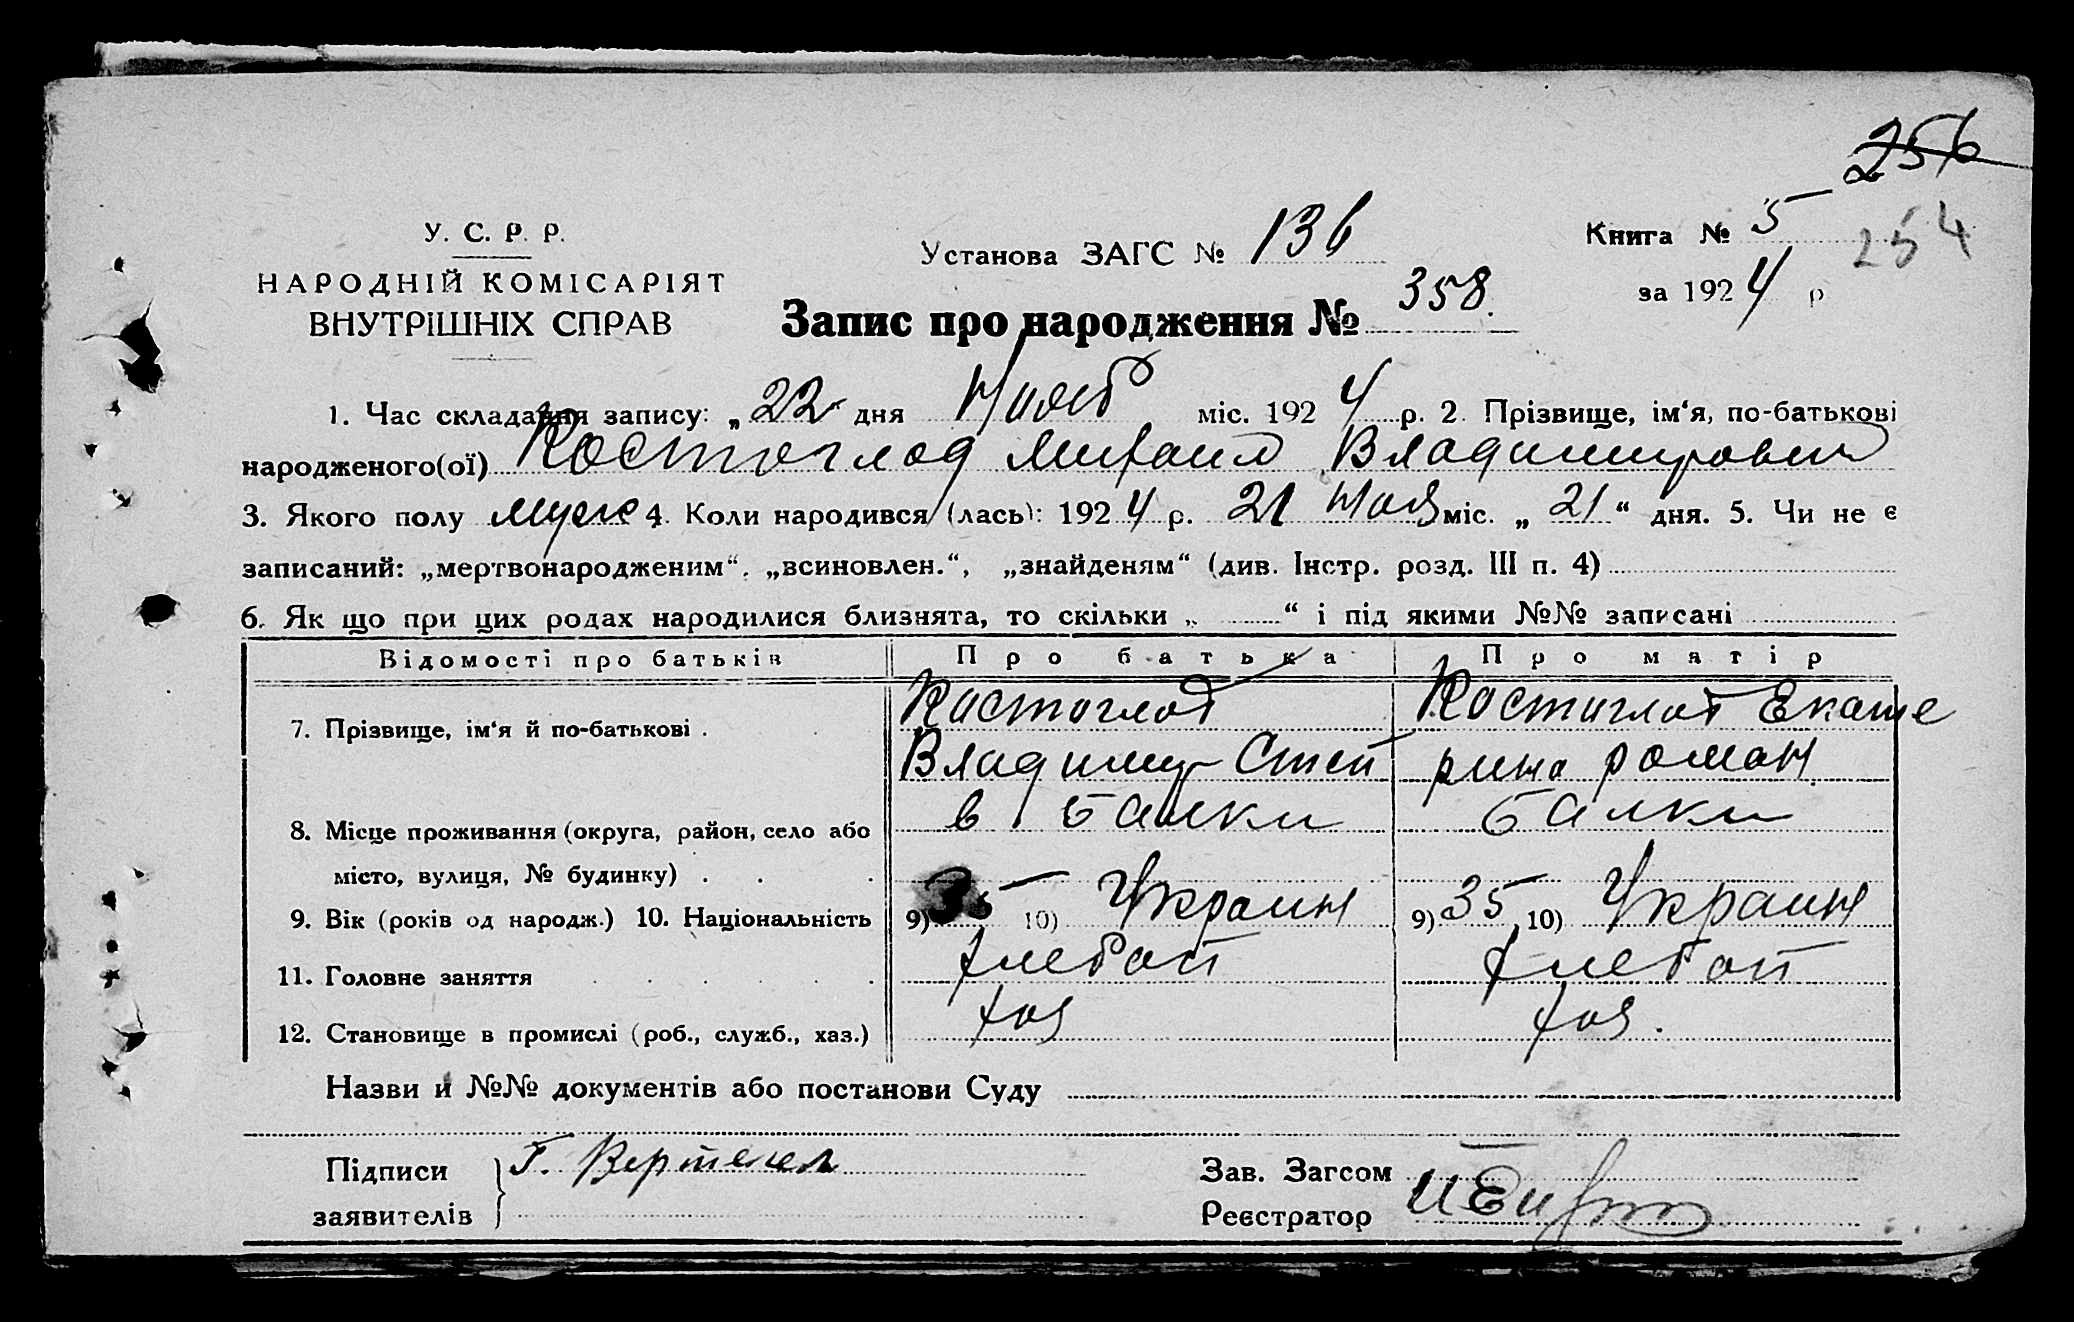 256
254
У. С. Р. Р.
НАРОДНІЙ КОМІСАРІЯТ
ВНУТРІШНІХ СПРАВ
Установа ЗАГС № 136
Книга № 5
за 1924 р
Запис про народження № 358.
1. Час складання запису: „22“ дня Нояб міс. 1924 р. 2. Прізвище, ім‘я, по-батькові
народженого(ої) Костоглод Михаил Владимирович
3. Якого полу муж 4. Коли народився/(лась): 1924 р. 21 Ноя міс. „ 21 “ дня. 5. Чи не є
записаний: „мертвонародженим“, „всиновлен.“, „знайденям“ (див. Інстр. розд. III п. 4)
6. Як що при цих родах народилися близнята, то скільки „ “ і під якими №№ записані
Відомості про батьків Про батька Про матір
7. Прізвище, ім‘я й по-батькові . Костоглод Костоглод Екате
Владимир Степ рина роман
8. Місце проживання (округа, район, село або в Балки Балки
місто, вулиця, № будинку) . . .
9. Вік (років од народж.) 10. Національність 9) 35 10) Украин 9) 35 10) Украин
11. Головне заняття . . . . . хлебоп хлебоп
12. Становище в промислі (роб., служб., хаз.) хоз хоз.
Назви й №№ документів або постанови Суду
Підписи Г. Зав. Загсом
заявителів Реєстратор